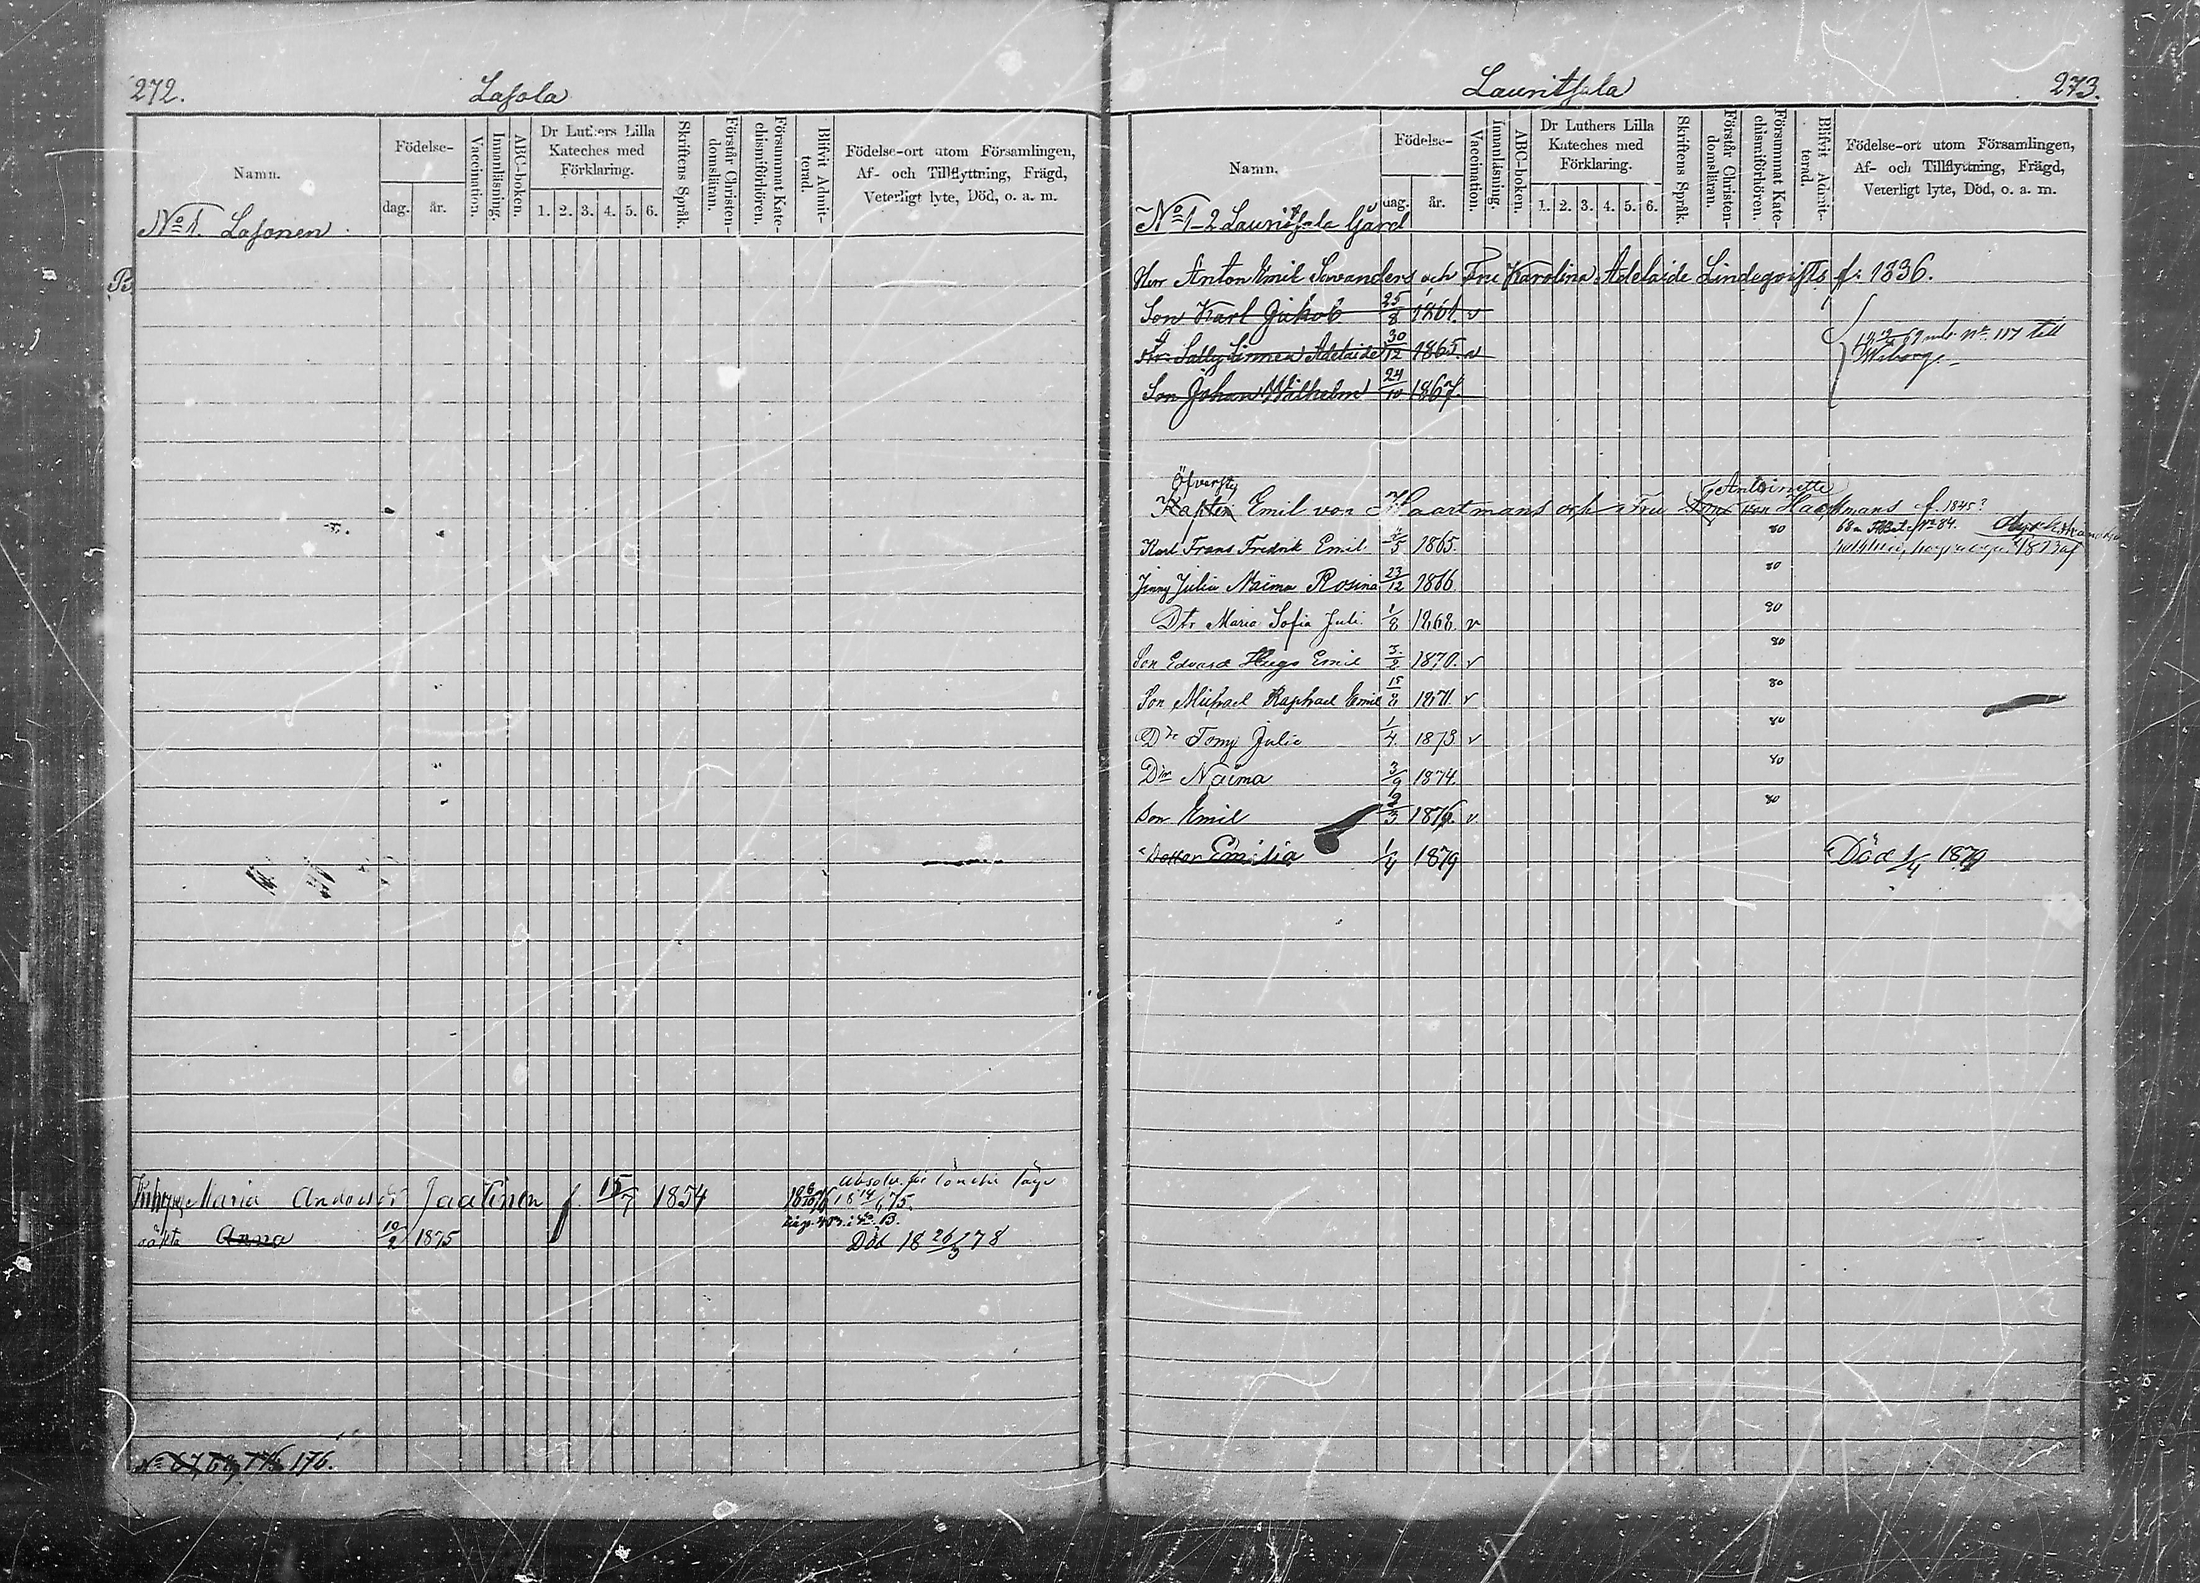 272. Lasola
Namn.
Födelse-
dag. år.
Vaccination.
Innanläsning.
ABC-boken.
Dr Luthers Lilla Kateches med Förklaring.
1. 2. 3. 4. 5. 6.
Skriftens Språk.
Förstår Christendomsläran.
Försummat Katechismiförhören.
Blifvit Admitterad.
Födelse-ort utom Församlingen,
Af- och Tillflyttning, Frägd,
Veterligt lyte, Död, o. a. m.
No 1. Lasonen
Maria Jaatinen f. 15/7 1854
oäkta Anna 10/2 1875 Död 18 26/3 78
176.
Lauritsala 273.
Namn.
Födelse-
dag. år.
Vaccination.
Innanläsning.
ABC-boken.
Dr Luthers Lilla Kateches med Förklaring.
1. 2. 3. 4. 5. 6.
Skriftens Språk.
Förstår Christendomsläran.
Försummat Katechismiförhören.
Blifvit Admitterad.
Födelse-ort utom Församlingen,
Af- och Tillflyttning, Frägd,
Veterligt lyte, Död, o. a. m.
No 1-2 Lauritsala Gård
Herr Anton Emil Savanders och Fru Karolina Adelaide Lindeqvists f. 1836.
Son Karl Jakob 25/8 1861. v
Sally Linnea Adelaide 30/12 1865. v No 117 till
Wiborg.
Son Johan Wilhelm 24/10 1867.
Öfverste Antoinette
Kapten Emil von Haartmans och Fru von Haartmans f. 1845?
Karl Frans Fredrik Emil 1865. 80 No 84.
Jenny Julia Naima Rosina 23/12 1866 80
Dtr Maria Sofia Juli. 1/8 1868. v 80
Son Edvard Hugo Emil 3/2 1870. v 80
Son Michael Raphael Emil 15/8 1871. v 80
Dtr Tony Julie 1/4. 1873 v 80
Dtr Naima 3/9 1874. 80
Son Emil v. 80
Dotter Emilia 1/4 1879 Död 1/4 1879